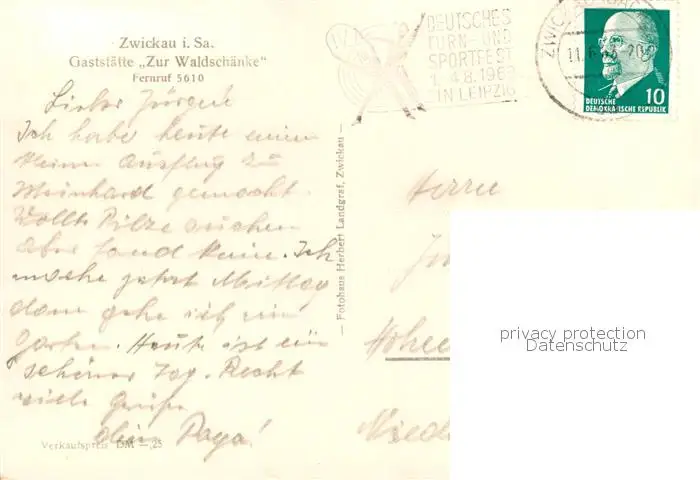 Zwickau i. Sa.
Gaststätte „Zur Waldschänke"
Fernruf 5610
Lieber Jürgen!
Ich habe heute einen
kleinen Ausflug zu
Meinhard gemacht.
Wollte Pilze suchen
aber fand keine. Ich
mache jetzt Mittag
dann gehe ich in
Garten. Heute ist ein
schöner Tag. Recht
viele Grüße
Dein Papa!
Verkaufspreis DM –,25
– Fotohaus Herbert Landgraf, Zwickau –
DEUTSCHES
TURN- UND
SPORTFEST
4.8.1963
IN LEIPZIG
ZWICKAU
11.6.63
10
DEUTSCHE
DEMOKRATISCHE REPUBLIK
Herrn
privacy protection
Datenschutz